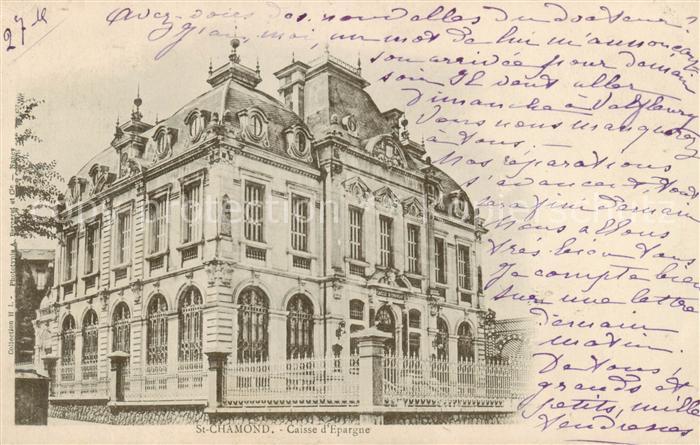 27 A
Avez-vous des nouvelles du docteur,
J'ai, moi, un mot de lui m'annonçant
son arrivée pour demain
soir Il veut aller
Dimanche à Valfleury
Vous nous manquez
à tous.
Nos réparations
s'avancent, tout
sera fini demain
Nous allons
très bien tous
Je compte bien
sur une lettre
demain
matin.
De tous,
grands et
petits, mille
tendresses
Collection H L. - Phototypie A. et Cie
St-CHAMOND. - Caisse d'Epargne